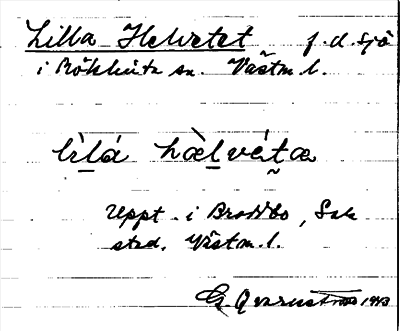 Lilla Helvetet f.d. sjö
i Bökhult sn. Västm. l.
lìlá hæ̀lvétæ
Uppt. i Broddbo, Sala
stad. Västm. l.
G. Qvarnström 1943